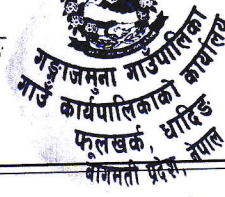 गङ्गाजमुना गाउँपालिका
गाउँ कार्यपालिकाको कार्यालय
फूलखर्क, धादिङ
बागमती प्रदेश, नेपाल